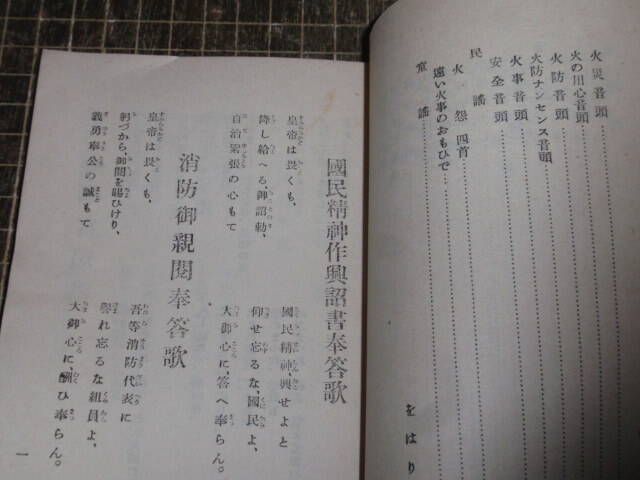 火災音頭
火の用心音頭
火防音頭
火防ナンセンス音頭
火事音頭
安全音頭
民謡
火の怨四首
遠い火事のおもひで
童謡
をはり
國民精神作興詔書奉答歌
皇帝は畏くも、
降し給へる御詔勅、
自治緊張の心もて
國民精神、興せよと
仰せ忘るな、國民よ、
大御心に、答へ奉らん。
消防御親閲奉答歌
皇帝は畏くも、
躬づから、御閲を賜ひけり、
義勇奉公の誠もて
吾等消防代表に
譽れ忘るな組員よ、
大御心に、酬ひ奉らん。
一